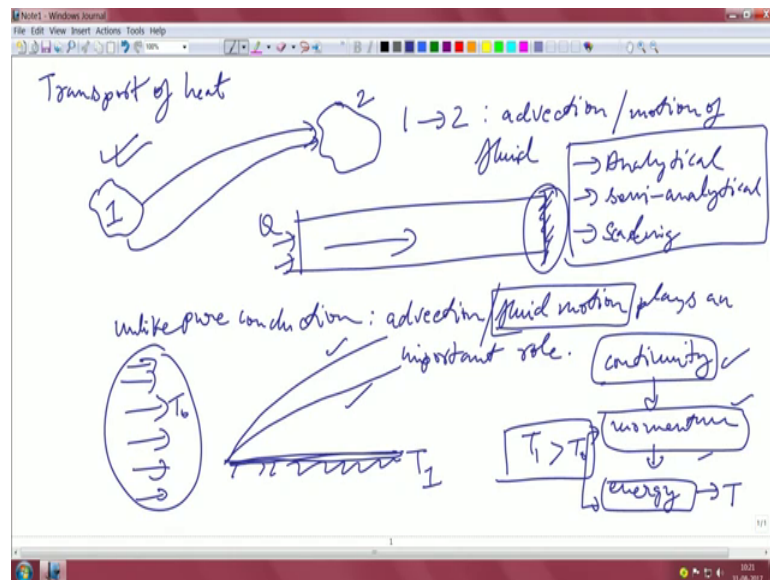 Note1 - Windows Journal
File Edit View Insert Actions Tools Help
100%
B I
Transport of heat
2
1 → 2 : advection/motion of
fluid
→ Analytical
→ semi-analytical
→ Scaling
1
Q
unlike pure conduction : advection/fluid motion plays an
important role.
continuity
T₀
momentum
T₁ > T₀
T₁
energy → T
1/1
1
10:21